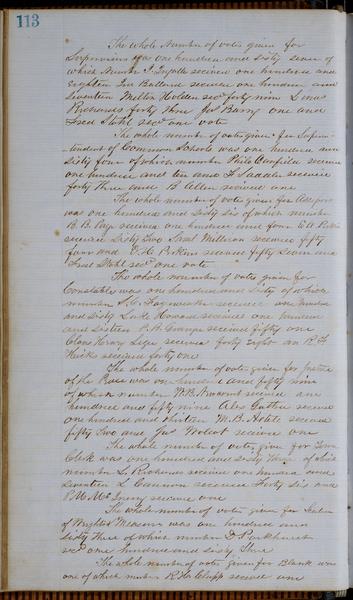 113
The whole number of votes given for
Supervisors was one hundred and sixty seven of
which number J. received one hundred and
Eighteen Ballard received one hundred and
Seventeen Milton Holden recd forty nine Linus
Richards forty three Jas Barry one and
Fred Stahl recd one vote
The whole number of votes given for Superin-
tendent of Common Schools was one hundred and
sixty four of which number Philo Canfield received
one hundred and ten and F Sadler received
forty three and B Allen received one
The whole number of votes given for Assessor
was one hundred and sixty six of which number
B. B. Page received one hundred and four
received Sixty Two received fifty
four and received fifty and
Fred Stahl recd one vote
The whole number of votes given for
Constable was one hundred and sixty of which
number received one hundred
and sixty Howard received one hundred
and sixteen P. A. received fifty one
Henry received forty eight an R F
received forty one
The whole number of votes given for Justice
of the Peace was one hundred and fifty nine
of which number W. B. received one
hundred and fifty nine Alex Guthrie received
one hundred and thirteen M. B. received
fifty Two and Jas received one
The whole number of votes given for Town
Clerk was one hundred and sixty three of which
number L. Richards received one hundred and
Seventeen L Cannon received Forty Six and
received one
The whole number of votes given for Sealer
of Weights & Measures was one hundred and
sixty three of which number D Parkhurst
recd one hundred and sixty three
The whole number of votes given for Blank was
one of which number R H Clipp received one